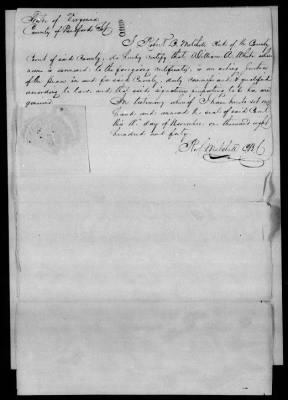 State of Virginia
County of Bedford Sct
I Robert C. Mitchell Clerk of the County
Court of said County, do hereby certify that William A. White whose
name is annexed to the foregoing certificate, is an acting Justice
of the peace in and for said County, duly commissioned & qualified
according to law, and that said signature purporting to be his is
genuine.
In testimony whereof I have hereto set my
hand and annexed the seal of said Court
this day of November one thousand eight
hundred and forty
Ro. C. Mitchell